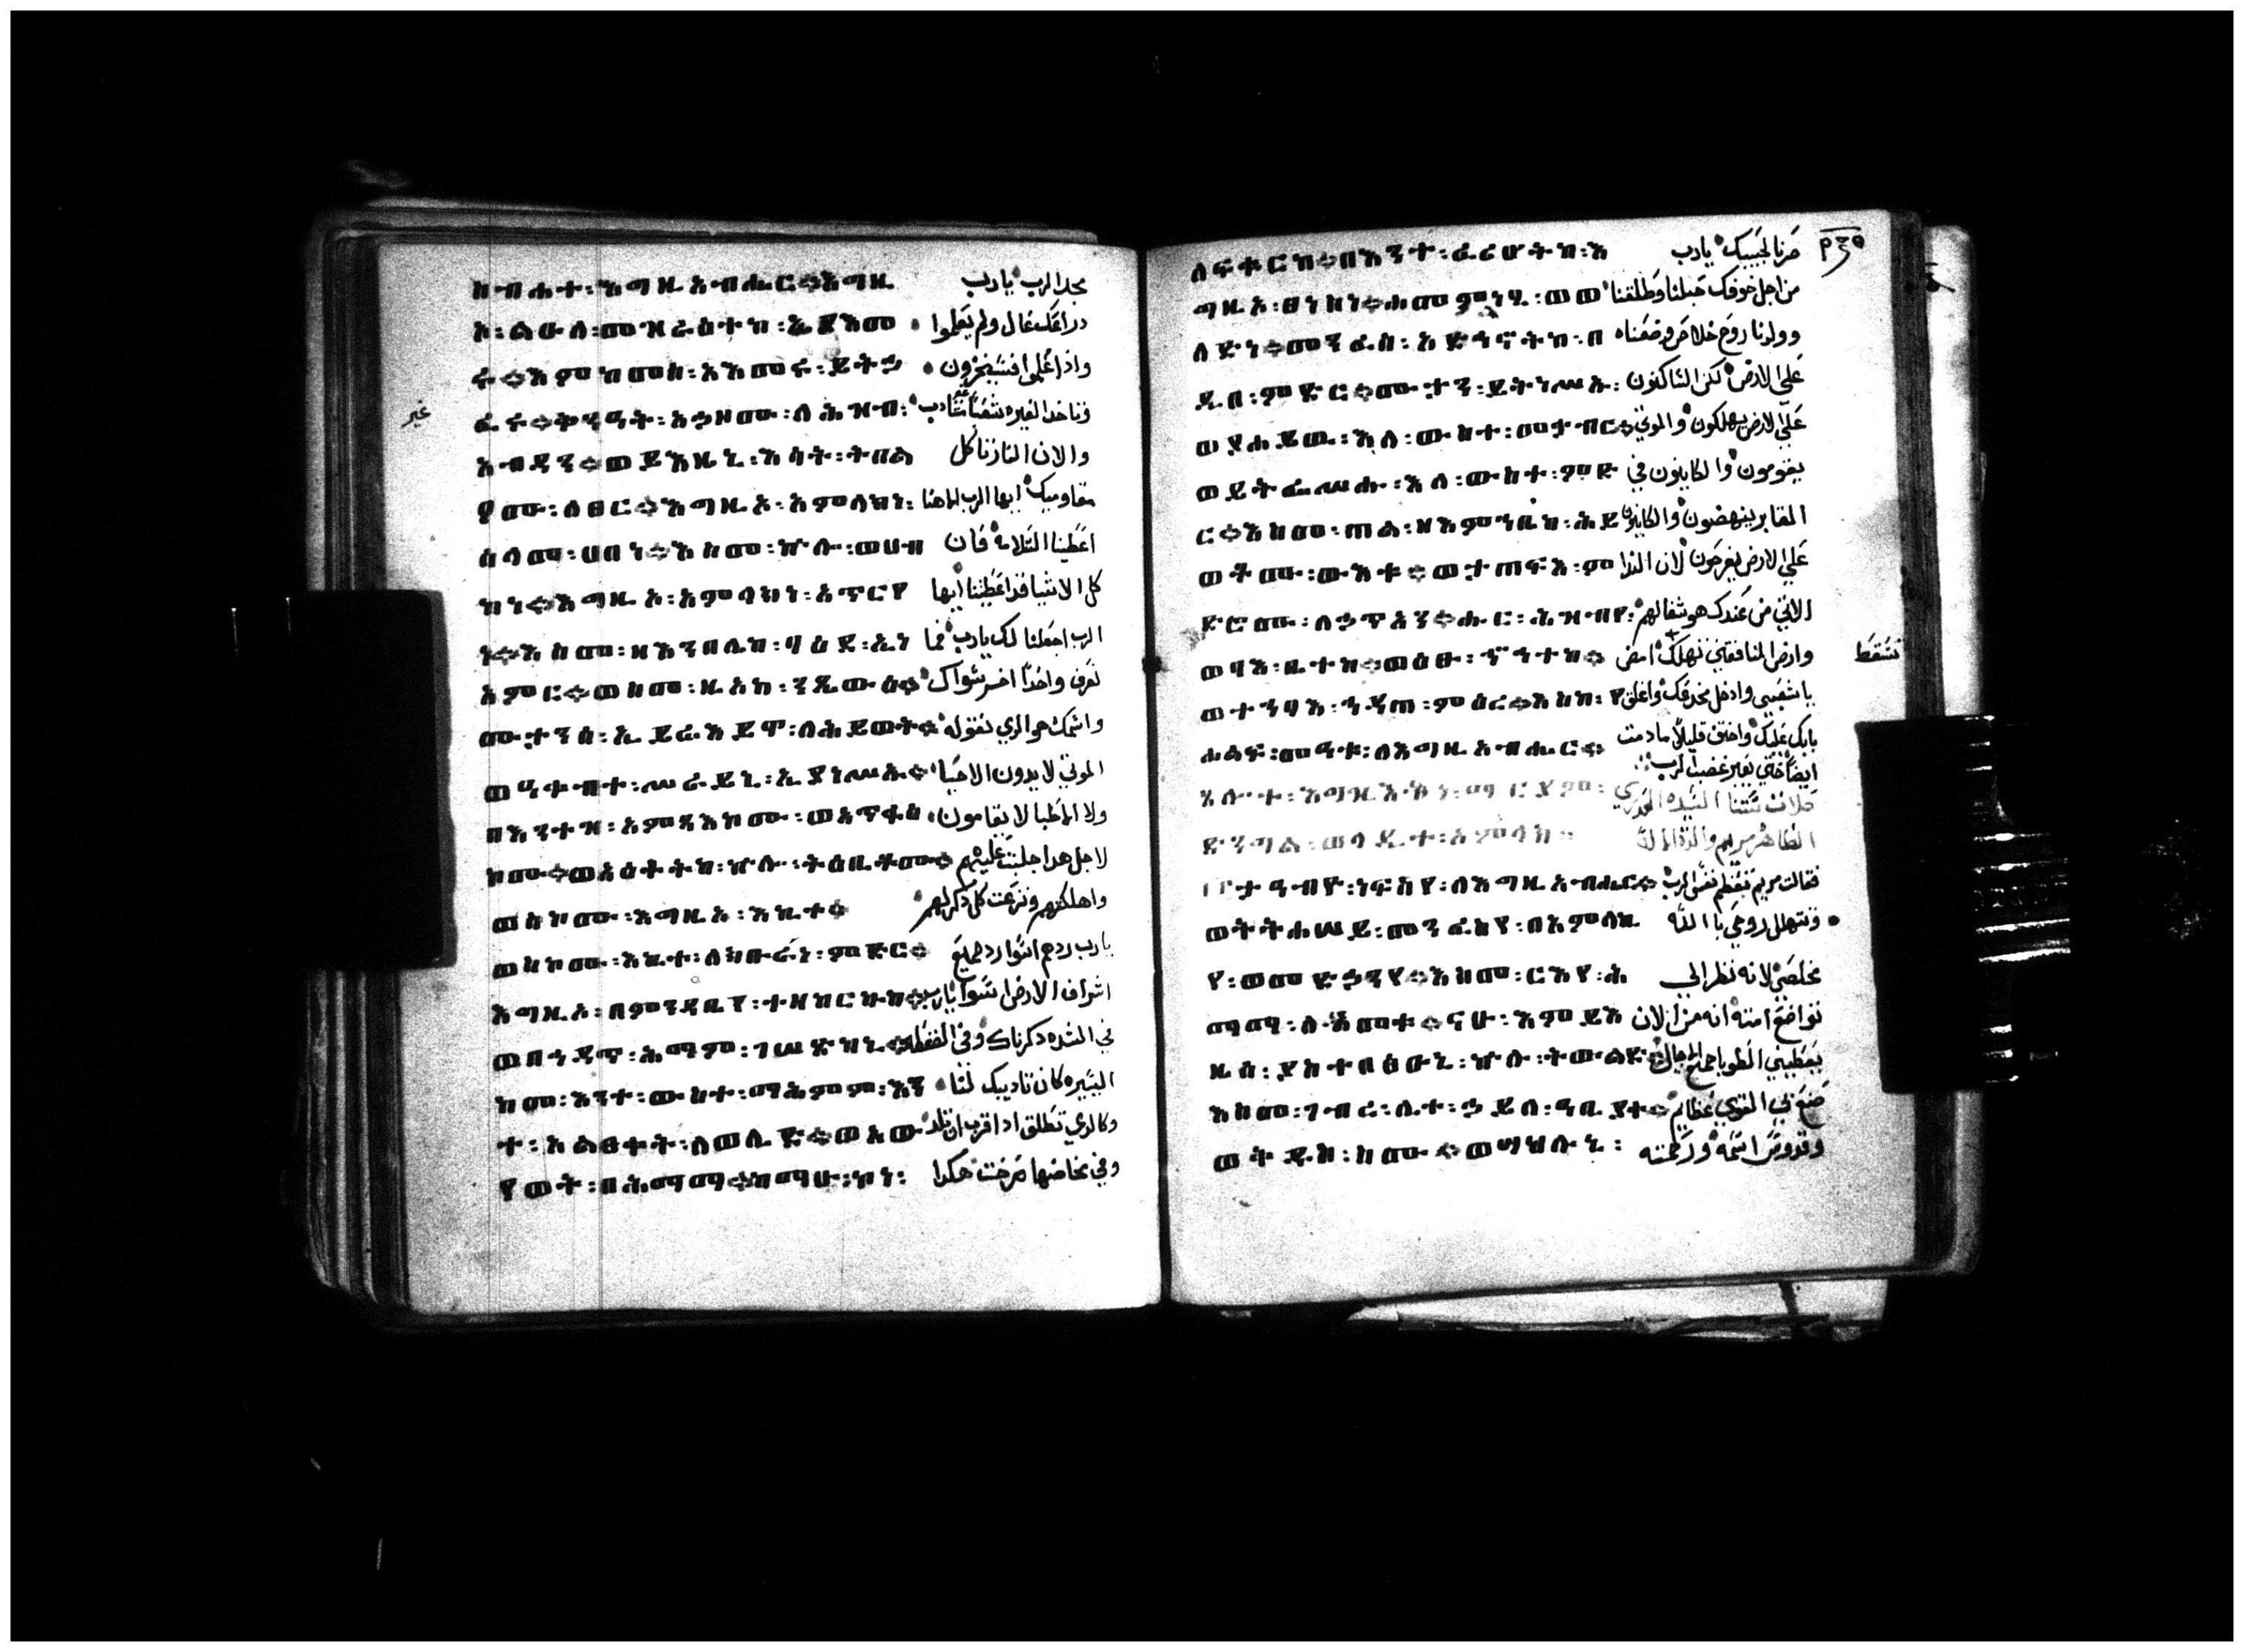 ስብሐተ፡እግዚአብሔር፨እግዚ مجد الرب يارب
ኦ፡ልዑል፡መዝራዕትከ፡ኢያእመ دراعك عال ولم يعلموا
ሩ፨እምከመሰ፡አእመሩ፡ይትኃ واذا علموا فسيخزون
ፈሩ፨ቅንዓት፡አኃዞሙ፡ለሕዝብ፡ وتاخد الغيره شعبا
غير
አብዳን፨ወይእዜኒ፡እሳት፡ትበል والان النار تاكل
ዖሙ፡ለፀር፨እግዚኦ፡አምላክነ፡ مقاوميك ايها الرب الاهنا
ሰላመ፡ሀበነ፨እስመ፡ኵሎ፡ወሀብ اعطينا السلامه فان
ከነ፨እግዚኦ፡አምላክነ፡አጥርየ كل الاشيا قد اعطيتنا ايها
ነ፨እስመ፡ዘእንበሌከ፡ባዕደ፡ኢነ الرب اجعلنا لك يارب فما
አምር፨ወስመ፡ዚአከ፡ንጼውዕ፨ نعرف واحدا اخر سواك
ሙታንሰ፡ኢይሬእይዋ፡ለሕይወት፨ واسمك هو الدي نقوله
ወዓቀብተ፡ሥራይኒ፡ኢያነሥኡ፨ الموتي لا يرون الاحيا
በእንተዝ፡አምጻእኮሙ፡ወአጥፋዕ ولا الاطبا لا يقامون
ኮሙ፨ወአዕተትከ፡ኵሎ፡ተዕዪቶሙ፨ لاجل هدا جلبت عليهم
ወስኮሙ፡እግዚኦ፡እኪተ፨ واهلكتهم ونزعت كل دكر لهم
ወስኮሙ፡እኪተ፡ለክቡራነ፡ምድር፨ يارب زدهم اسوا زد جميع
እግዚኦ፡በምንዳቤየ፡ተዘከርኩከ፨ اشراف الارض اسوا يارب
ወበንዳድ፡ሕማም፡ገሠጽከኒ፨ في الشده دكرناك وفي الضغطه
ከመ፡እንተ፡ውስተ፡ማሕምም፡እን اليسيره كان تاديبك لنا
ተ፡አልፀቀት፡ለወሊድ፨ወአው وكالدي تطلق ادا قرب ان تلد
የወት፡በሕማማ፨ከማሁ፡ኮነ፡ وفي مخاضها صرخت هكدا
ለፍቁርከ፨በእንተ፡ፈሪሆትከ፡እ صرنا لحبيبك يارب
ግዚኦ፡ፀነስነ፨ሐመምነሂ፡ወወ من اجل خوفك حبلنا وطلقنا
ለድነ፨መንፈሰ፡አድኅኖትከ፡በ وولدنا روح خلاص وضعناه
ዲበ፡ምድር፨ሙታን፡ይትነሥኡ፡ علي الارض لكن الساكنون
ወያሐይዉ፡እለ፡ውስተ፡መቃብር፨ علي الارض يهلكون والموتي
ወይትፌሥሑ፡እለ፡ውስተ፡ምድ يقومون والكاينون في
ር፨እስመ፡ጠል፡ዘእምኀቤከ፡ሕይ المقابر ينهضون والكاينون
ወቶሙ፡ውእቱ፨ወታጠፍእ፡ም علي الارض يفرحون لان الندا
ድሮሙ፡ለኃጥኣን፨ሑር፡ሕዝብየ፡ الاتي من عندك هو شفا لهم
ወባእ፡ቤተከ፨ወዕፁ፡ኆኅተከ፨ وارض المنافقين تهلك امض
تسقط
ወተኀባእ፡ኅዳጠ፡ምዕረ፨እስከ፡የ يا شعبي وادخل مخدعك واغلق
ሐልፍ፡መዓቱ፡ለእግዚአብሔር፨ بابك عليك واختف قليلا ما دمت
ايضا حتي يعبر غضب الرب
ጸሎተ፡እግዝእትነ፡ማርያም፡ صلات ستنا السيده
ድንግል፡ወላዲተ፡አምላክ። الطاهر مريم والدة الاله
ታዓብየ፡ነፍስየ፡ለእግዚአብሔር፨ فقالت مريم تعظم نفسي الرب
ወትትሐሠይ፡መንፈስየ፡በአምላኪ وتتهلل روحي با الله
የ፡ወመድኃንየ፨እስመ፡ርእየ፡ሕ مخلصي لانه نظر الي
ማማ፡ለዓመቱ፨ናሁ፡እምይእ تواضع امته انه من الان
ዜሰ፡ያስተበፅዑኒ፡ኵሉ፡ትውልድ፨ يعطيني الطوبا جميع الاجيال
እስመ፡ገብረ፡ሊተ፡ኃይለ፡ዓቢያተ፨ صنع بي القوي عظايم
ወቅዱስ፡ስሙ፨ወሣህሉኒ፡ وقدوس اسمه ورحمته